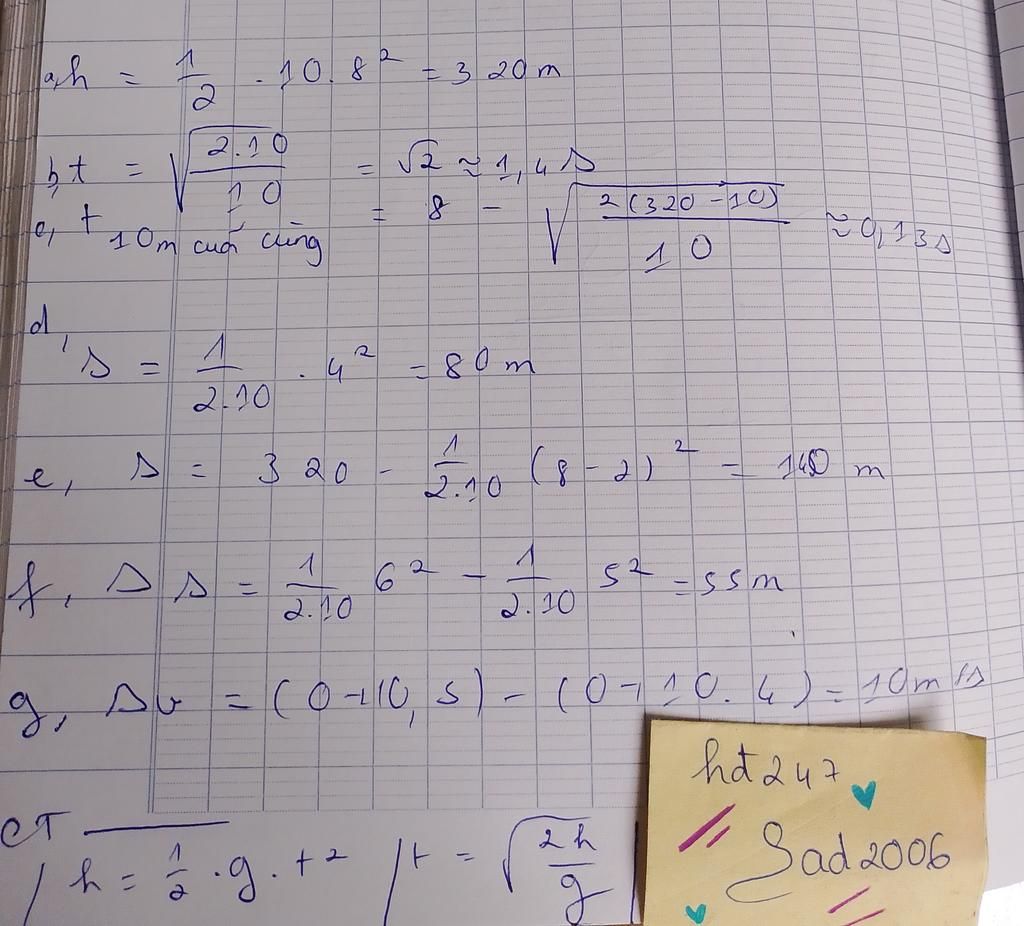 a, h = 1/2 . 10. 8² = 320m
b, t = √(2.10/10) = √2 ≈ 1,4 s
c, t 10m cuối cùng = 8 - √(2(320-10)/10) ≈ 0,13s
d,
s = 1/2.10 . 4² = 80m
e, s = 320 - 1/2.10 (8-2)² = 140 m
f, Δs = 1/2.10 6² - 1/2.10 5² = 55m
g, Δv = (0+10, 5) - (0+10.4) = 10m/s
CT
h = 1/2 . g . t² | t = √(2h/g)
hđ247
Sad2006